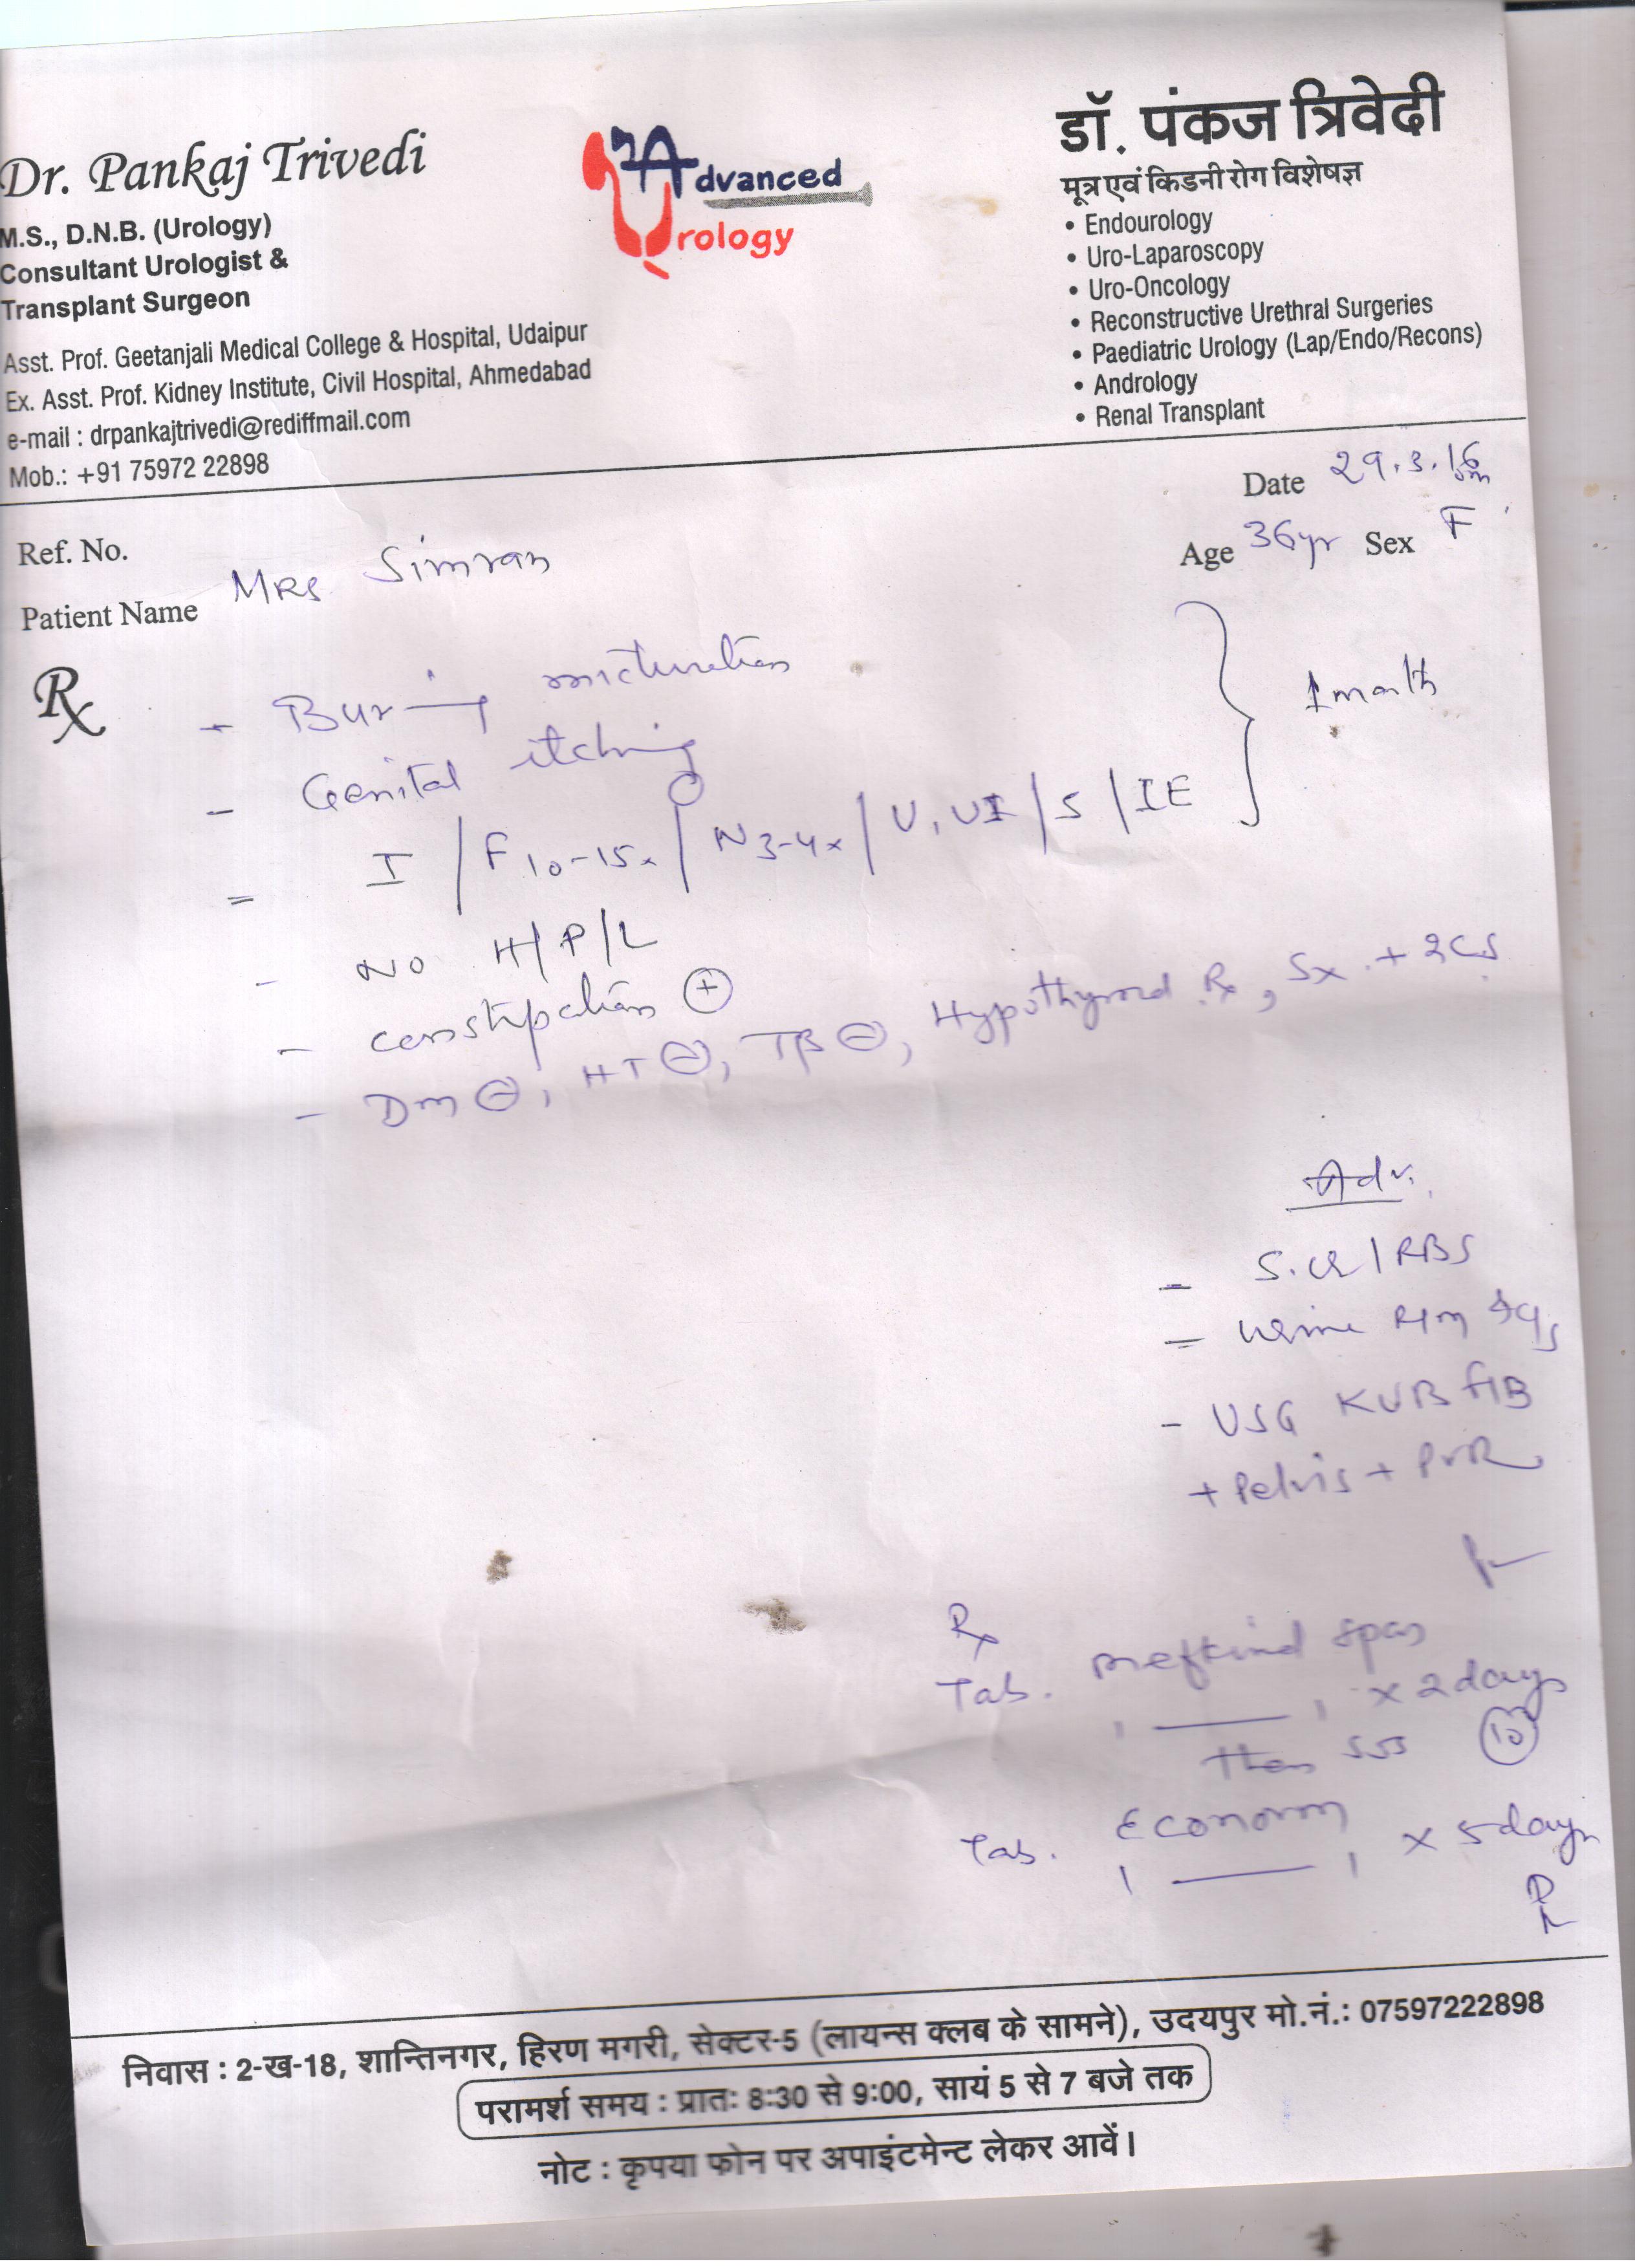 Dr. Pankaj Trivedi
M.S., D.N.B. (Urology)
Consultant Urologist &
Transplant Surgeon
Asst. Prof. Geetanjali Medical College & Hospital, Udaipur
Ex. Asst. Prof. Kidney Institute, Civil Hospital, Ahmedabad
e-mail : drpankajtrivedi@rediffmail.com
Mob.: +91 75972 22898
Advanced
Urology
डॉ. पंकज त्रिवेदी
मूत्र एवं किडनी रोग विशेषज्ञ
• Endourology
• Uro-Laparoscopy
• Uro-Oncology
• Reconstructive Urethral Surgeries
• Paediatric Urology (Lap/Endo/Recons)
• Andrology
• Renal Transplant
Date 29.3.16
Ref. No.
Age 36yr Sex F
Patient Name MRS Simran
Rx
- Burning micturition
- Genital itching
1 month
= I / F 10-15x / N 3-4x / U, UI / S / IE
- NO H/P/L
- constipation ⊕
- Dm ⊖, HT ⊖, TB ⊖, Hypothyroid Rx, Sx + 2CS
Adv.
- S.Cr / RBS
= Urine R/m
- USG KUB
+ Pelvis + PVR
Rx
Tab. mefkind spas
1 —— 1 x 2 days
then SOS 10
Tab. Econorm
1 —— 1 x 5 days
निवास : 2-ख-18, शान्तिनगर, हिरण मगरी, सेक्टर-5 (लायन्स क्लब के सामने), उदयपुर मो.नं.: 07597222898
परामर्श समय : प्रातः 8:30 से 9:00, सायं 5 से 7 बजे तक
नोट : कृपया फोन पर अपाइंटमेन्ट लेकर आवें।